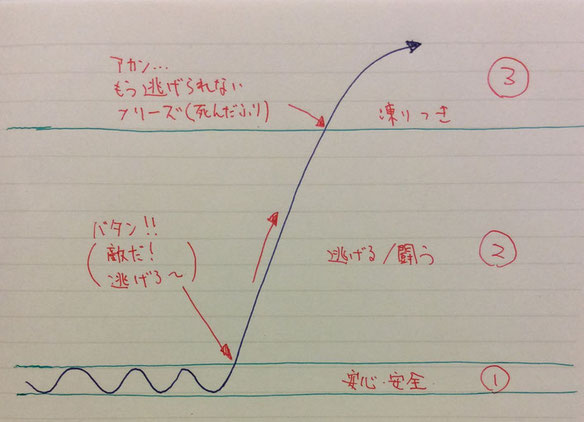 アカン…
もう逃げられない
フリーズ(死んだふり)
③
凍りつき
バタン!!
(敵だ!
逃げろ~)
逃げる/闘う
②
安心・安全
①